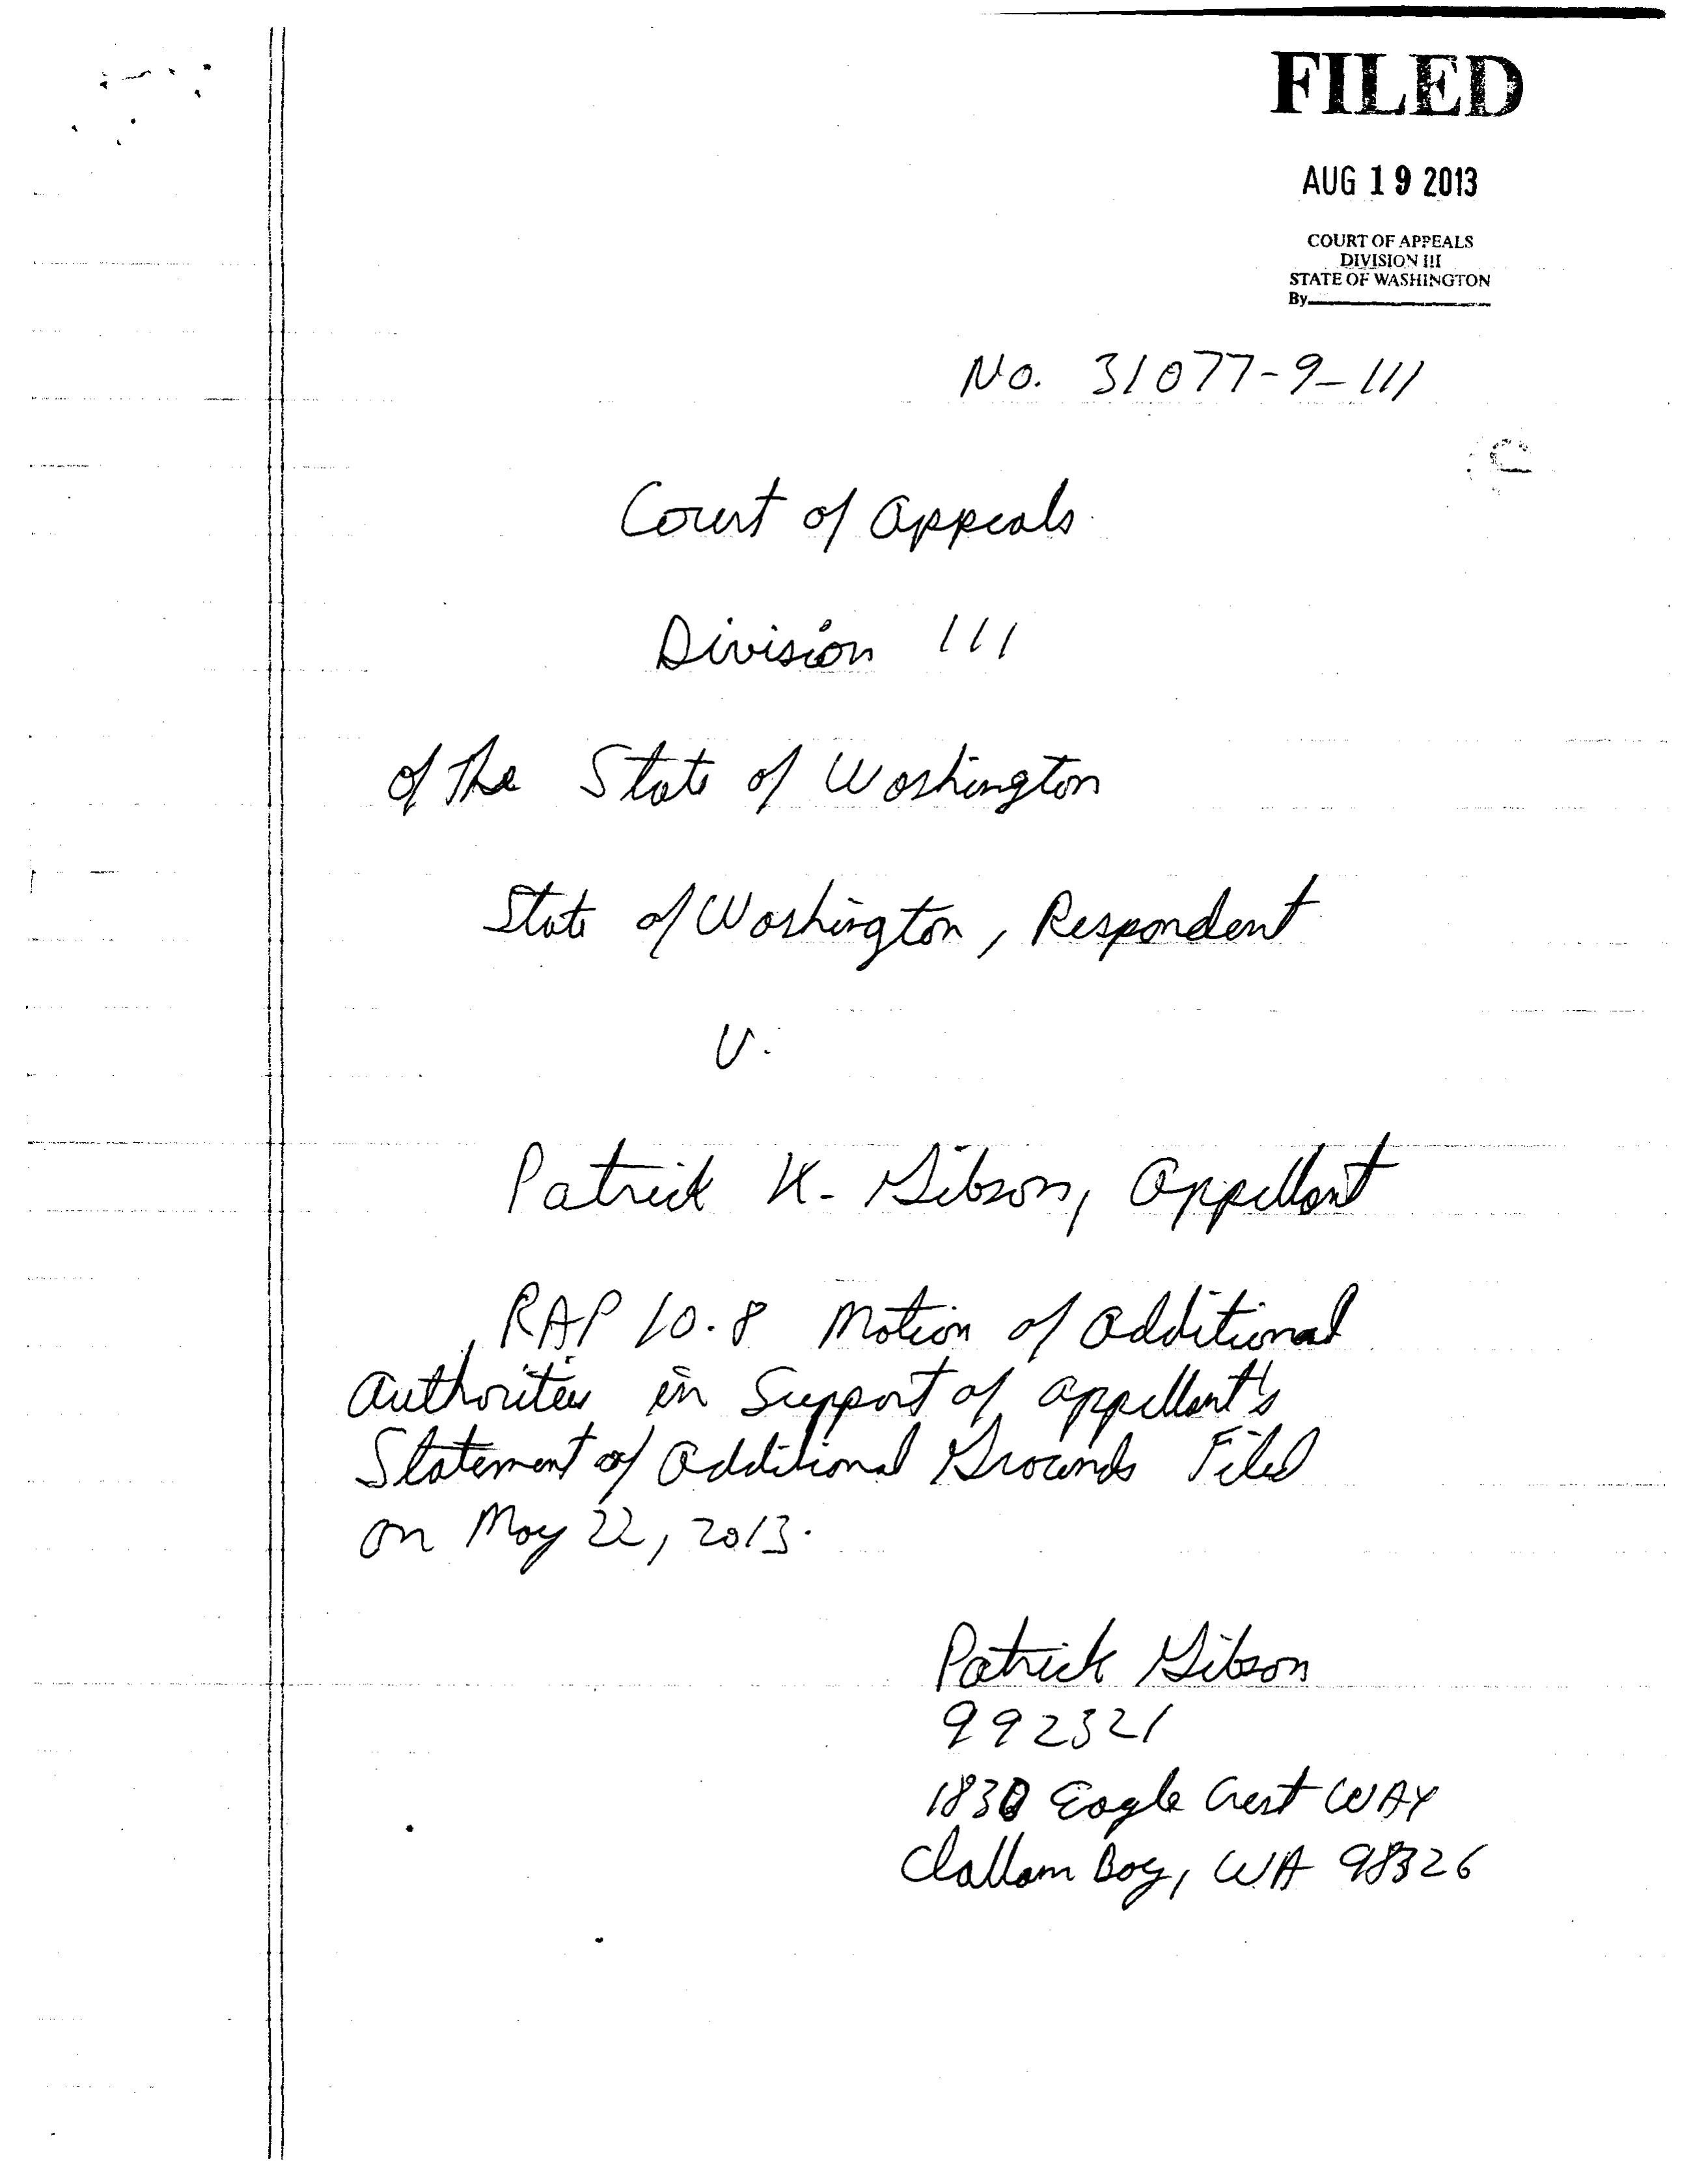 FILED
AUG 19 2013
COURT OF APPEALS
DIVISION III
STATE OF WASHINGTON
By
No. 31077-9-111
Court of Appeals
Division 111
of The State of Washington
State of Washington, Respondent
V.
Patrick K. Gibson, Appellant
RAP 10.8 Motion of Additional
Authorities in Support of Appellant's
Statement of Additional Grounds Filed
on May 22, 2013.
Patrick Gibson
992321
1830 Eagle Crest WAY
Clallam Bay, WA 98326